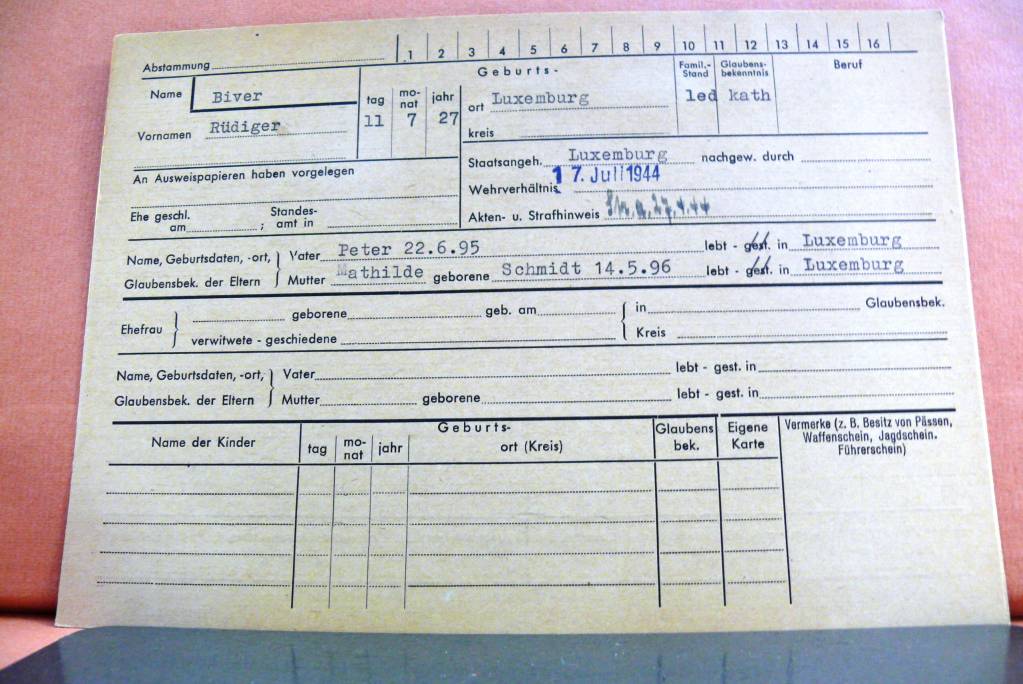 Abstammung 1 2 3 4 5 6 7 8 9 10 11 12 13 14 15 16
Name Biver
Vornamen Rüdiger
Geburts-
tag mo-nat jahr ort Luxemburg
11 7 27 kreis
Famil.-Stand led
Glaubens-bekenntnis kath
Beruf
An Ausweispapieren haben vorgelegen
Ehe geschl. am ; Standes-amt in
Staatsangeh. Luxemburg nachgew. durch
17. Juli 1944
Wehrverhältnis
Akten- u. Strafhinweis
Name, Geburtsdaten, -ort, Vater Peter 22.6.95 lebt - gest. in Luxemburg
Glaubensbek. der Eltern Mutter Mathilde geborene Schmidt 14.5.96 lebt - gest. in Luxemburg
Ehefrau geborene geb. am in Glaubensbek.
verwitwete - geschiedene Kreis
Name, Geburtsdaten, -ort, Vater lebt - gest. in
Glaubensbek. der Eltern Mutter geborene lebt - gest. in
Name der Kinder
Geburts-
tag mo-nat jahr ort (Kreis)
Glaubens bek.
Eigene Karte
Vermerke (z. B. Besitz von Pässen,
Waffenschein, Jagdschein.
Führerschein)